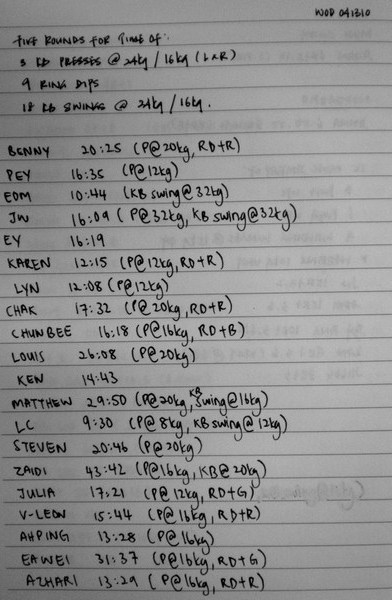 WOD 041310
FIVE ROUNDS FOR TIME OF:
3 KB PRESSES @ 24kg / 16kg (L&R)
9 RING DIPS
18 KB SWINGS @ 24kg / 16kg.
BENNY 20:25 (P@20kg, RD+R)
PEY 16:35 (P@12kg)
EDM 10:44 (KB swing@32kg)
JW 16:09 (P@32kg, KB swing@32kg)
EY 16:19
KAREN 12:15 (P@12kg, RD+R)
LYN 12:08 (P@12kg)
CHAK 17:32 (P@20kg, RD+R)
CHUNBEE 16:18 (P@16kg, RD+B)
LOUIS 26:08 (P@20kg)
KEN 14:43
MATTHEW 29:50 (P@20kg, KB swing@16kg)
LC 9:30 (P@8kg, KB swing@12kg)
STEVEN 20:46 (P@20kg)
ZAIDI 43:42 (P@16kg, KB@20kg)
JULIA 17:21 (P@12kg, RD+G)
V-LEON 15:44 (P@16kg, RD+R)
AHPING 13:28 (P@16kg)
EAWEI 31:37 (P@16kg, RD+G)
AZHARI 13:29 (P@16kg, RD+R)